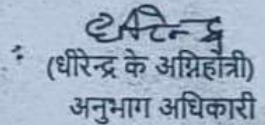 धीरेन्द्र
(धीरेन्द्र के अग्निहोत्री)
अनुभाग अधिकारी